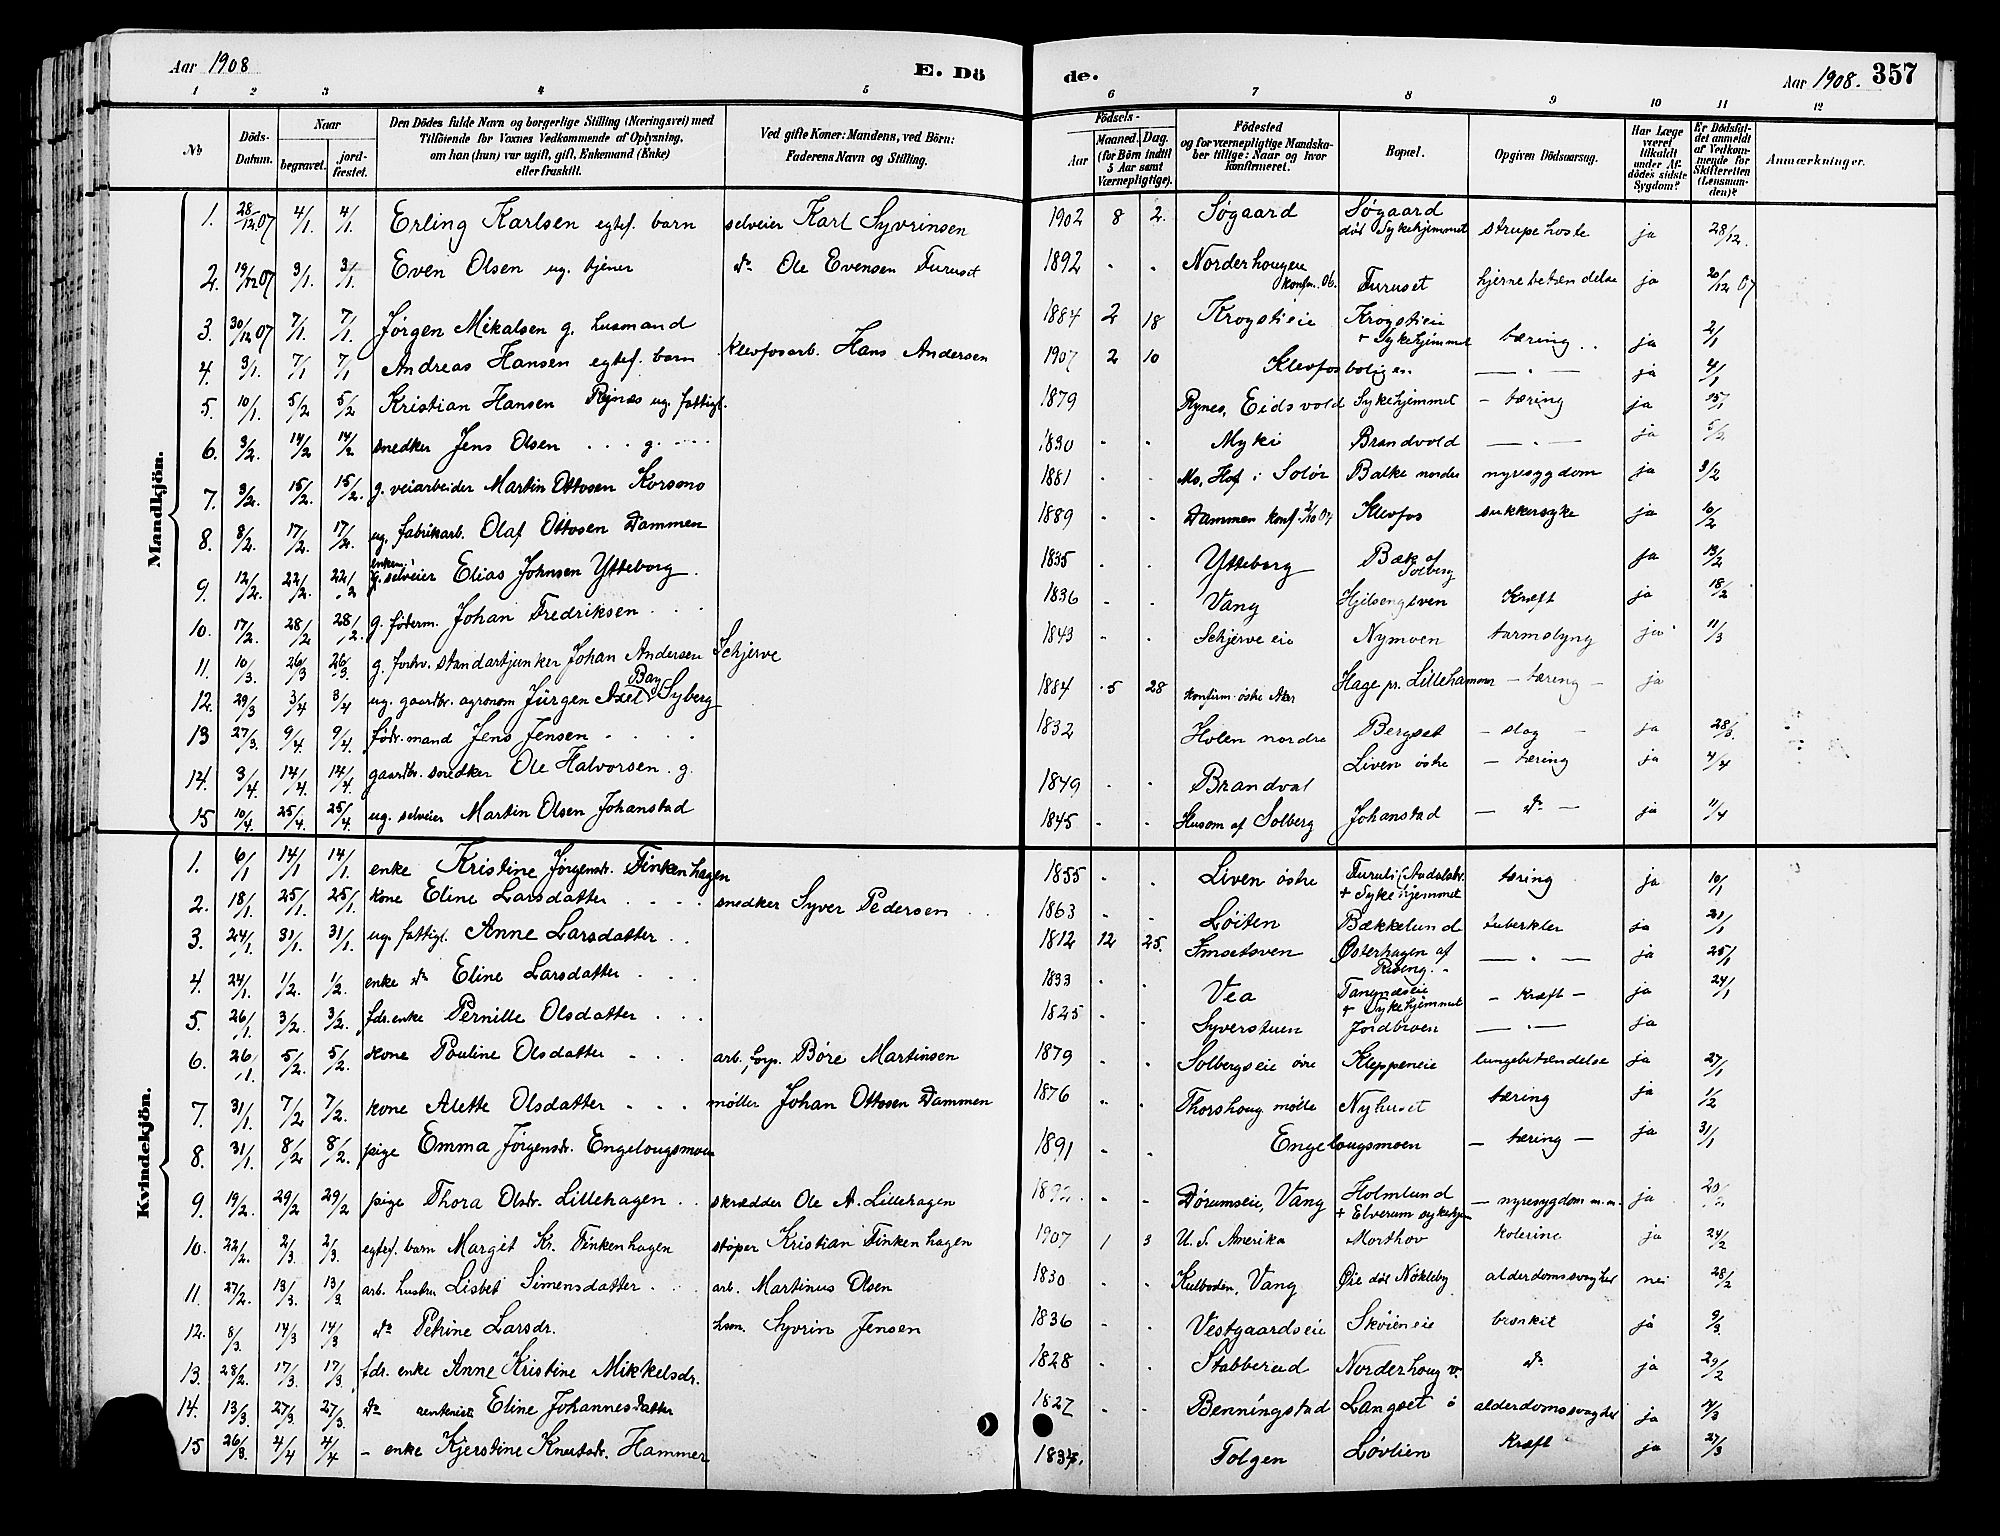 Aar 1908 E. Dö
de. Aar 1908. 357
1 2 3 4 5 6 7 8 9 10 11 12
No Döds-Datum. Naar begravet. jordfæstet. Den Dödes fulde Navn og borgerlige Stilling (Næringsvei) med Tilföiende for Voxnes Vedkommende af Oplysning, om han (hun) var ugift, gift, Enkemand (Enke) eller fraskilt. Ved gifte Koner: Mandens, ved Börn: Faderens Navn og Stilling.
Födsels- Aar Maaned. Dag. (for Börn indtil 5 Aar samt Værnepligtige). Födested og for værnepligtige Mandskaber tillige: Naar og hvor konfirmeret. Bopæl. Opgiven Dödsaarsag. Har Læge været tilkaldt under Afdödes sidste Sygdom? Er Dödsfaldet anmeldt af Vedkommende for Skifteretten (Lensmanden)? Anmærkninger.
Mandkjön.
1. 28/12 07 4/1. 4/1. Erling Karlsen egtef. barn selveier Karl Syvrinsen 1902 8 2. Søgaard Søgaard död Sykehjemmet strupehoste ja 28/12.
2. 19/12 07 3/1. 3/1. Even Olsen ug. tjener do Ole Evensen Furuset 1892 . . Norderhougeie konfm. 06. Furuset hjernebetændelse ja 20/12 07
3. 30/12 07 7/1. 7/1. Jørgen Mikalsen g. husmand 1884 2 18 Krogstieie Krogstieie + Sykehjemmet tæring ja 2/1
4. 3/1. 7/1 7/1 Andreas Hansen egtef. barn Klevfosarb. Hans Andersen 1907 2 10 Klevfosboliger. — " — ja 4/1
5. 10/1. 5/2 5/2 Kristian Hansen Rynæs ug. fattigl. 1879 Rynes, Eidsvold Sykehjemmet - tæring ja 15/1
6. 3/2. 14/2 14/2 snedker Jens Olsen . . . g. 1830 . . Myki Brandvold — " — ja 5/2.
7. 3/2. 15/2. 15/2. g. veiarbeider Martin Ottosen Korsmo 1881 . . Mo, Hof i Solör Balke nordre nyresygdom ja 3/2
8. 8/2. 17/2. 17/2. ug. fabrikarb. Olaf Ottosen Dammen 1889 . . Dammen konf. 04 Klevfos sukkersyke ja 10/2
9. 12/2. 22/2. 22/2 enkem. g. selveier Elias Johnsen Ytteborg. 1835 . . Ytteborg Bæk af Solberg ja 13/2
10. 17/2. 28/2 28/2. g. föderm. Johan Fredriksen 1836 . . Vang Kræft ja 18/2
11. 10/3. 26/3 26/3. g. forhv. standartjunker Johan Andersen Schjerve 1843 . . Schjerve eie Nymoen tarmslyng ja 11/3
12. 29/3 3/4 3/4 ug. gaardbr. agronom Jürgen Axel Bay Syberg 1884 . 5 28 konfirm. östre Aker Hage pr. Lillehammer - tæring - ja
13 27/3. 9/4. 9/4. födr. mand Jens Jensen 1832 Holen nordre Bergset - slag - ja 28/3.
14. 3/4. 14/4. 14/4. gaardbr. snedker Ole Halvorsen. g. 1849 . . Brandval Liven östre - tæring ja 4/4
15 10/4. 25/4. 25/4. ug. selveier Martin Olsen Johanstad 1845 . . Husom af Solberg Johanstad - do - ja 11/4
Kvindekjön.
1. 6/1 14/1 14/1. enke Kristine Jørgensdr. Finkenhagen 1855 . . Liven östre Furuli + Sykehjemmet tæring ja 10/1
2. 18/1 25/1. 25/1. kone Eline Larsdatter snedker Syver Pedersen 1863 . . Løiten Bækkelund tuberkler ja 21/1
3. 24/1. 31/1. 31/1. ug. fattigl. Anne Larsdatter 1812 12 25. Smoetsven Østerhagen af — " — ja 25/1
4. 24/1. 1/2. 1/2. enke do Eline Larsdatter 1833 . . Vea Tangnæseie + Sykehjemmet - Kræft - ja 24/1
5. 26/1 3/2. 3/2. fdr. enke Pernille Olsdatter 1825 . . Syverstuen Jordbroen — " — ja
6. 26/1. 5/2. 5/2. kone Pauline Olsdatter arb., forp. Böre Martinsen 1879 . . Solbergseie övre Kleppeneie lungebetændelse ja 27/1
7. 31/1. 7/2 7/2. kone Alette Olsdatter møller Johan Ottosen Dammen 1876 . . Thorshoug mölle Nyhuset tæring ja 1/2
8. 31/1. 8/2 8/2. pige Emma Jørgensdr. Engelougsmoen 1891 . . Engelougsmoen - tæring - ja 31/1
9 19/2. 29/2 29/2 pige Thora Olsdr. Lillehagen skrædder Ole A. Lillehagen 1892. . . Dørumseie, Vang Holmlund + Elverum sykehjem - nyresygdom m.m. ja 20/2
10. 22/2. 2/3. 2/3. egtef. barn Margit Kr. Finkenhagen støper Kristian Finkenhagen 1907 1 3 U. S. Amerika Morthov kolerine ja 24/2
11. 27/2. 13/3. 13/3 arb. hustru Lisbet Simensdatter arb. Martinus Olsen 1830 . . Kulboden, Vang Øie död Nökleby alderdomssvaghed nei 28/2
12. 8/3. 14/3 14/3 do Petrine Larsdr. hsm. Syvrin Jensen 1836 . . Vestgaardseie Skøieneie bronkit ja 9/3.
13. 28/2. 17/3. 17/3 fdr. enke Anne Kristine Mikkelsdr. 1828 . . Stabberud Norderhoug v. do ja 29/2
14. 13/3. 27/3 27/3. do Eline Johannesdatter 1827 . . Benningstad Langset ö alderdomssvaghed ja
15 26/3. 4/4 4/4 - enke Kjerstine Knutsdr. Hammer 1834. Tolgen Løvlien Kræft ja 27/3